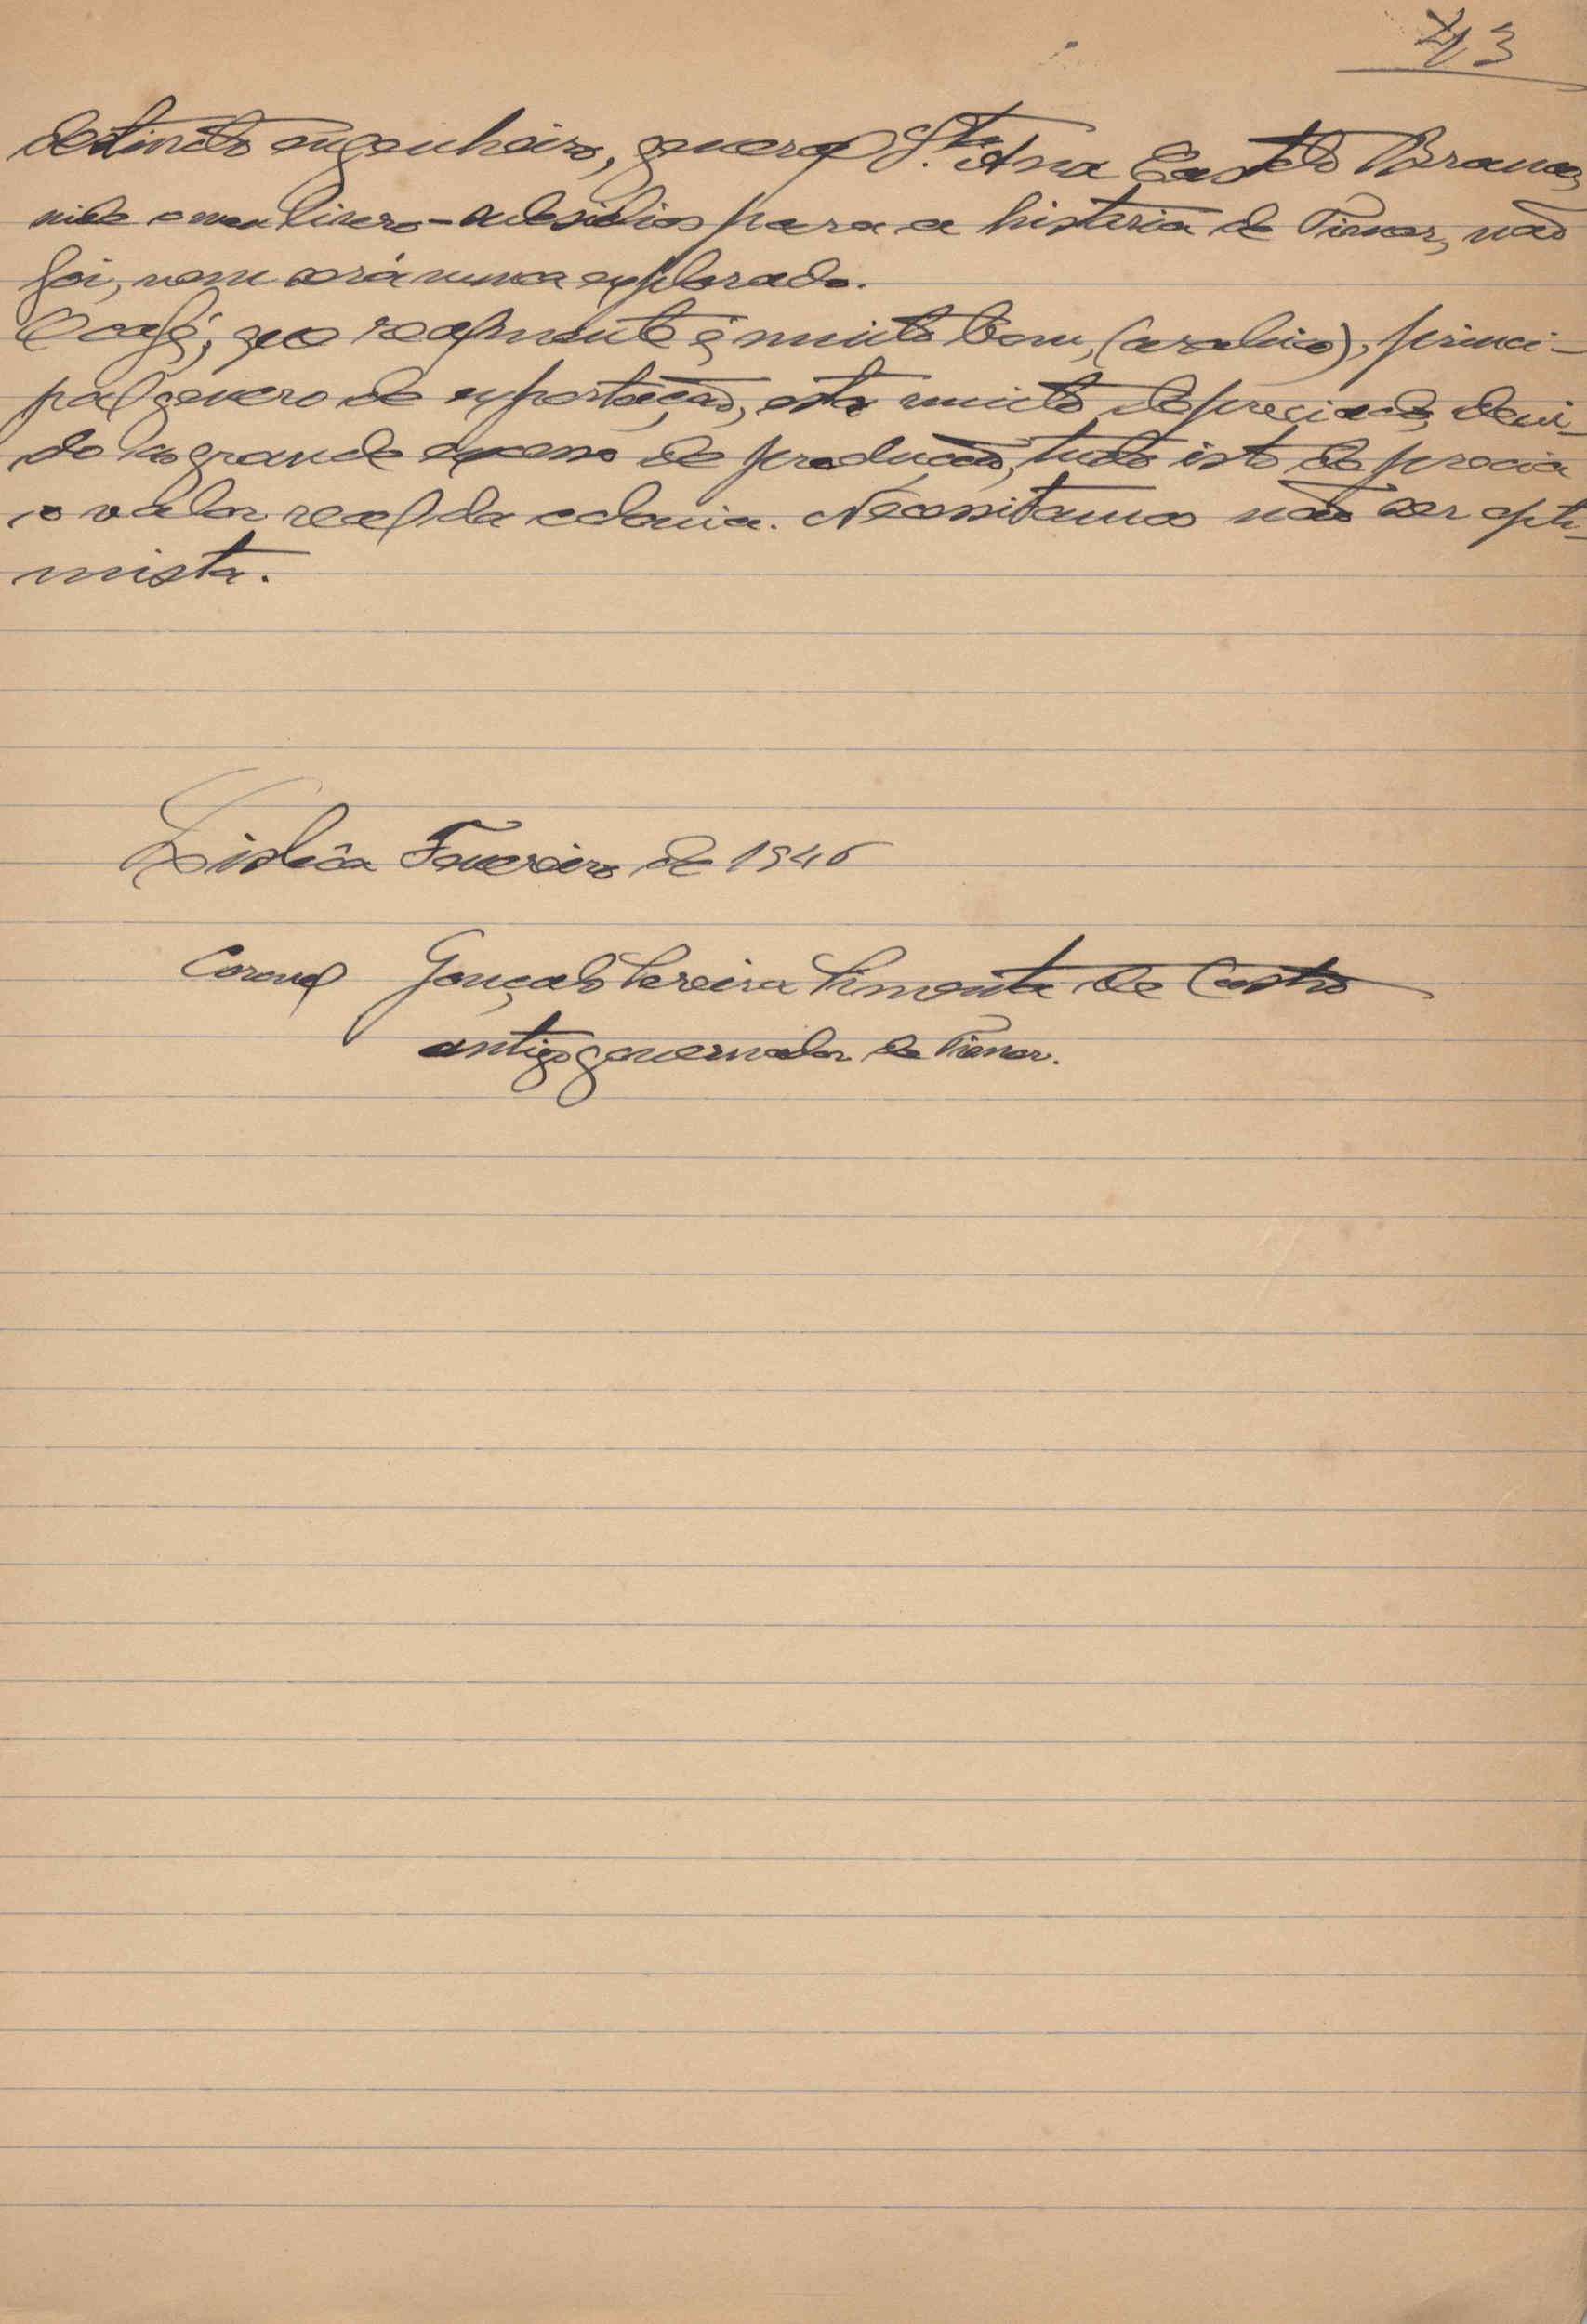 13
distincto engenheiro, general S.ta Ana Castelo Branco,
vide o meu livro - subsidios para a historia de Timor, não
foi, nem será nunca explorado.
O café, que realmente é muito bom, (arabico), princi-
pal genero de exportação, esta muito depreciado, devi-
do ao grande excesso de producção, tudo isto deprecia
o valor real da colonia. Necessitamos não ser opti-
mista.
Lisbôa Fevereiro de 1946
Coronel Gonçalo Pereira Pimenta de Castro
antigo governador de Timor.